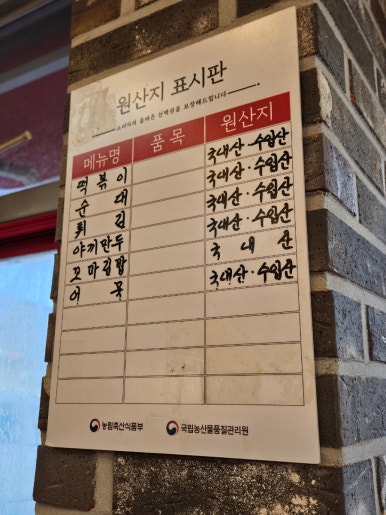 원산지 표시판
소비자의 올바른 선택권을 보장해드립니다
메뉴명 품목 원산지
떡볶이 국내산·수입산
순대 국내산·수입산
튀김 국내산·수입산
야끼만두 국내산·수입산
꼬마김밥 국내산
어묵 국내산·수입산
농림축산식품부 국립농산물품질관리원